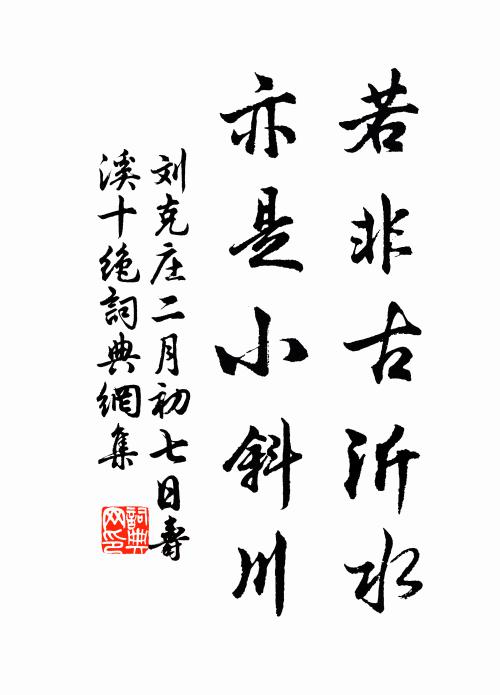 若非古沂水
亦是小斜川
刘克庄二月初七日壽
溪十绝詞典網集
詞典网印